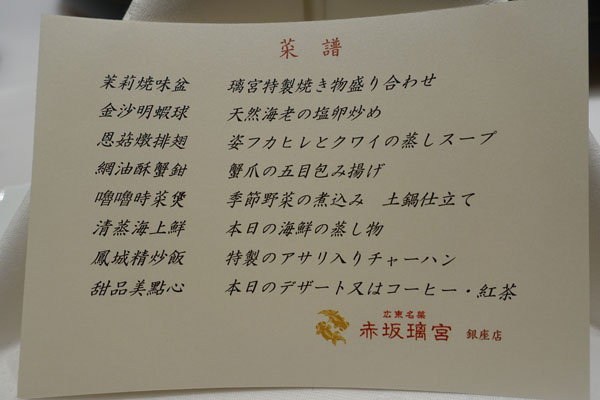 菜譜
茉莉焼味盆 璃宮特製焼き物盛り合わせ
金沙明蝦球 天然海老の塩卵炒め
恩菇燉排翅 姿フカヒレとクワイの蒸しスープ
網油酥蟹鉗 蟹爪の五目包み揚げ
嚕嚕時菜煲 季節野菜の煮込み 土鍋仕立て
清蒸海上鮮 本日の海鮮の蒸し物
鳳城精炒飯 特製のアサリ入りチャーハン
甜品美點心 本日のデザート又はコーヒー・紅茶
広東名菜
赤坂璃宮 銀座店